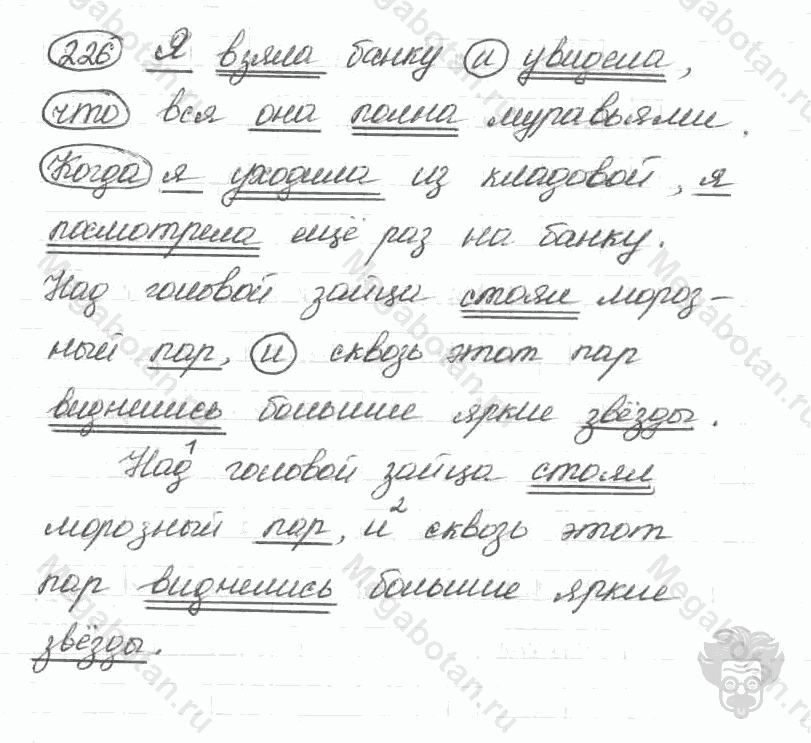 226 Я взяла банку и увидела,
что вся она полна муравьями.
Когда я уходила из кладовой, я
посмотрела ещё раз на банку.
Над головой зайца стоял мороз-
ный пар, и сквозь этот пар
виднелись большие яркие звёзды.
Над 1 головой зайца стоял
морозный пар, и 2 сквозь этот
пар виднелись большие яркие
звёзды.
Megabotan.ru